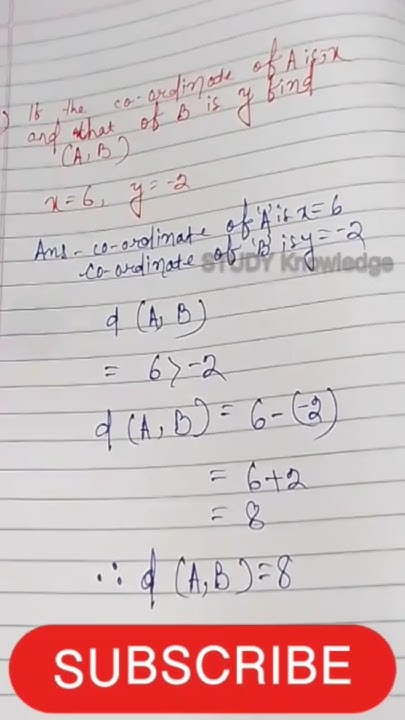 ) If the co-ordinate of A is x
and that of B is y find
(A, B)
x = 6, y = -2
Ans - co-ordinate of 'A' is x = 6
Co-ordinate of 'B' is y = -2
STUDY Knowledge
d (A, B)
= 6 > -2
d (A, B) = 6 - (-2)
= 6 + 2
= 8
∴ d (A, B) = 8
SUBSCRIBE